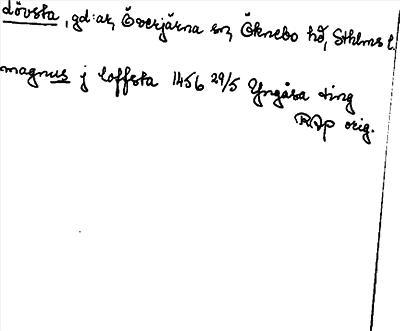 dövsta, gd:ar, Överjärna sn, Öknebo hd, Sthlms l.
magnus j loffsta 1456 29/5 Yngåsa ting
RAp orig.